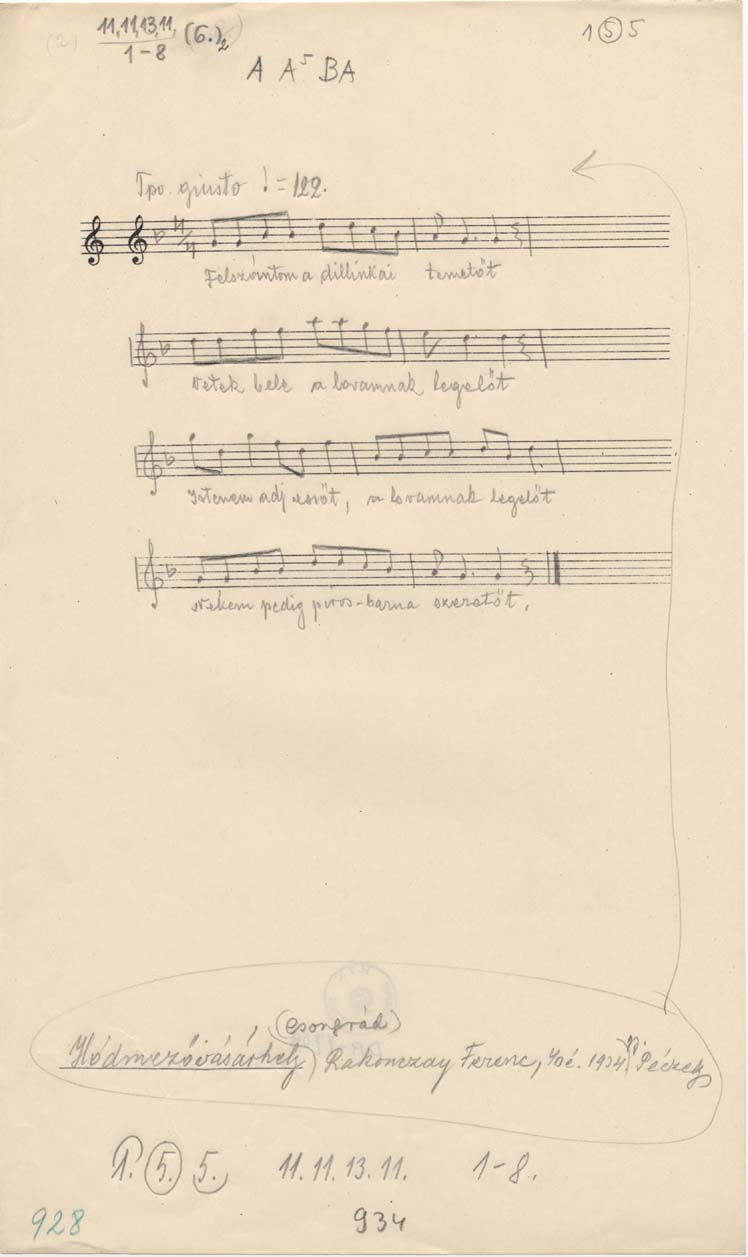 (2) 11,11,13,11, (6.)2 1 5 5
1-8
A A5 B A
Tpo. giusto ♩=122.
4/4
Felszántom a dillinkai temetőt
Vetek bele a lovamnak legelőt
Istenem adj esőt, a lovamnak legelőt
Nekem pedig piros-barna szeretőt.
(Csongrád)
Hódmezővásárhely) Rakonczay Ferenc, 40é. 1934 Péczely
1. 5. 5. 11.11.13.11. 1-8.
928 934